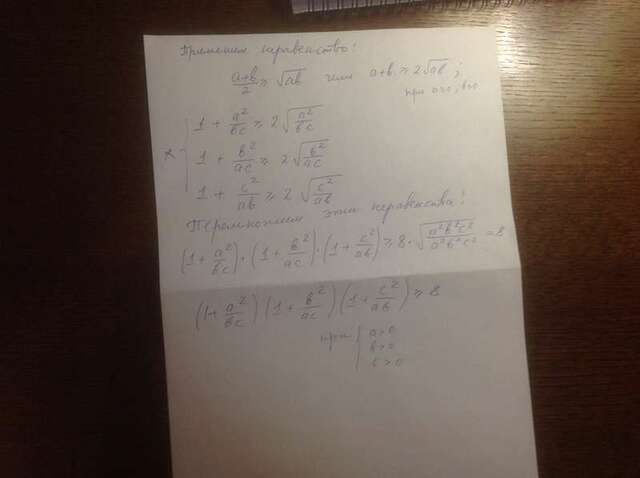 Применим неравенство!
(a+b)/2 ≥ √ab или a+b ≥ 2√ab;
при a>0; b>0
1 + a²/bc ≥ 2√(a²/bc)
1 + b²/ac ≥ 2√(b²/ac)
1 + c²/ab ≥ 2√(c²/ab)
Перемножим эти неравенства!
(1 + a²/bc)·(1 + b²/ac)·(1 + c²/ab) ≥ 8·√(a²b²c²/a²b²c²) = 8
(1 + a²/bc)(1 + b²/ac)(1 + c²/ab) ≥ 8
при { a>0
b>0
c>0